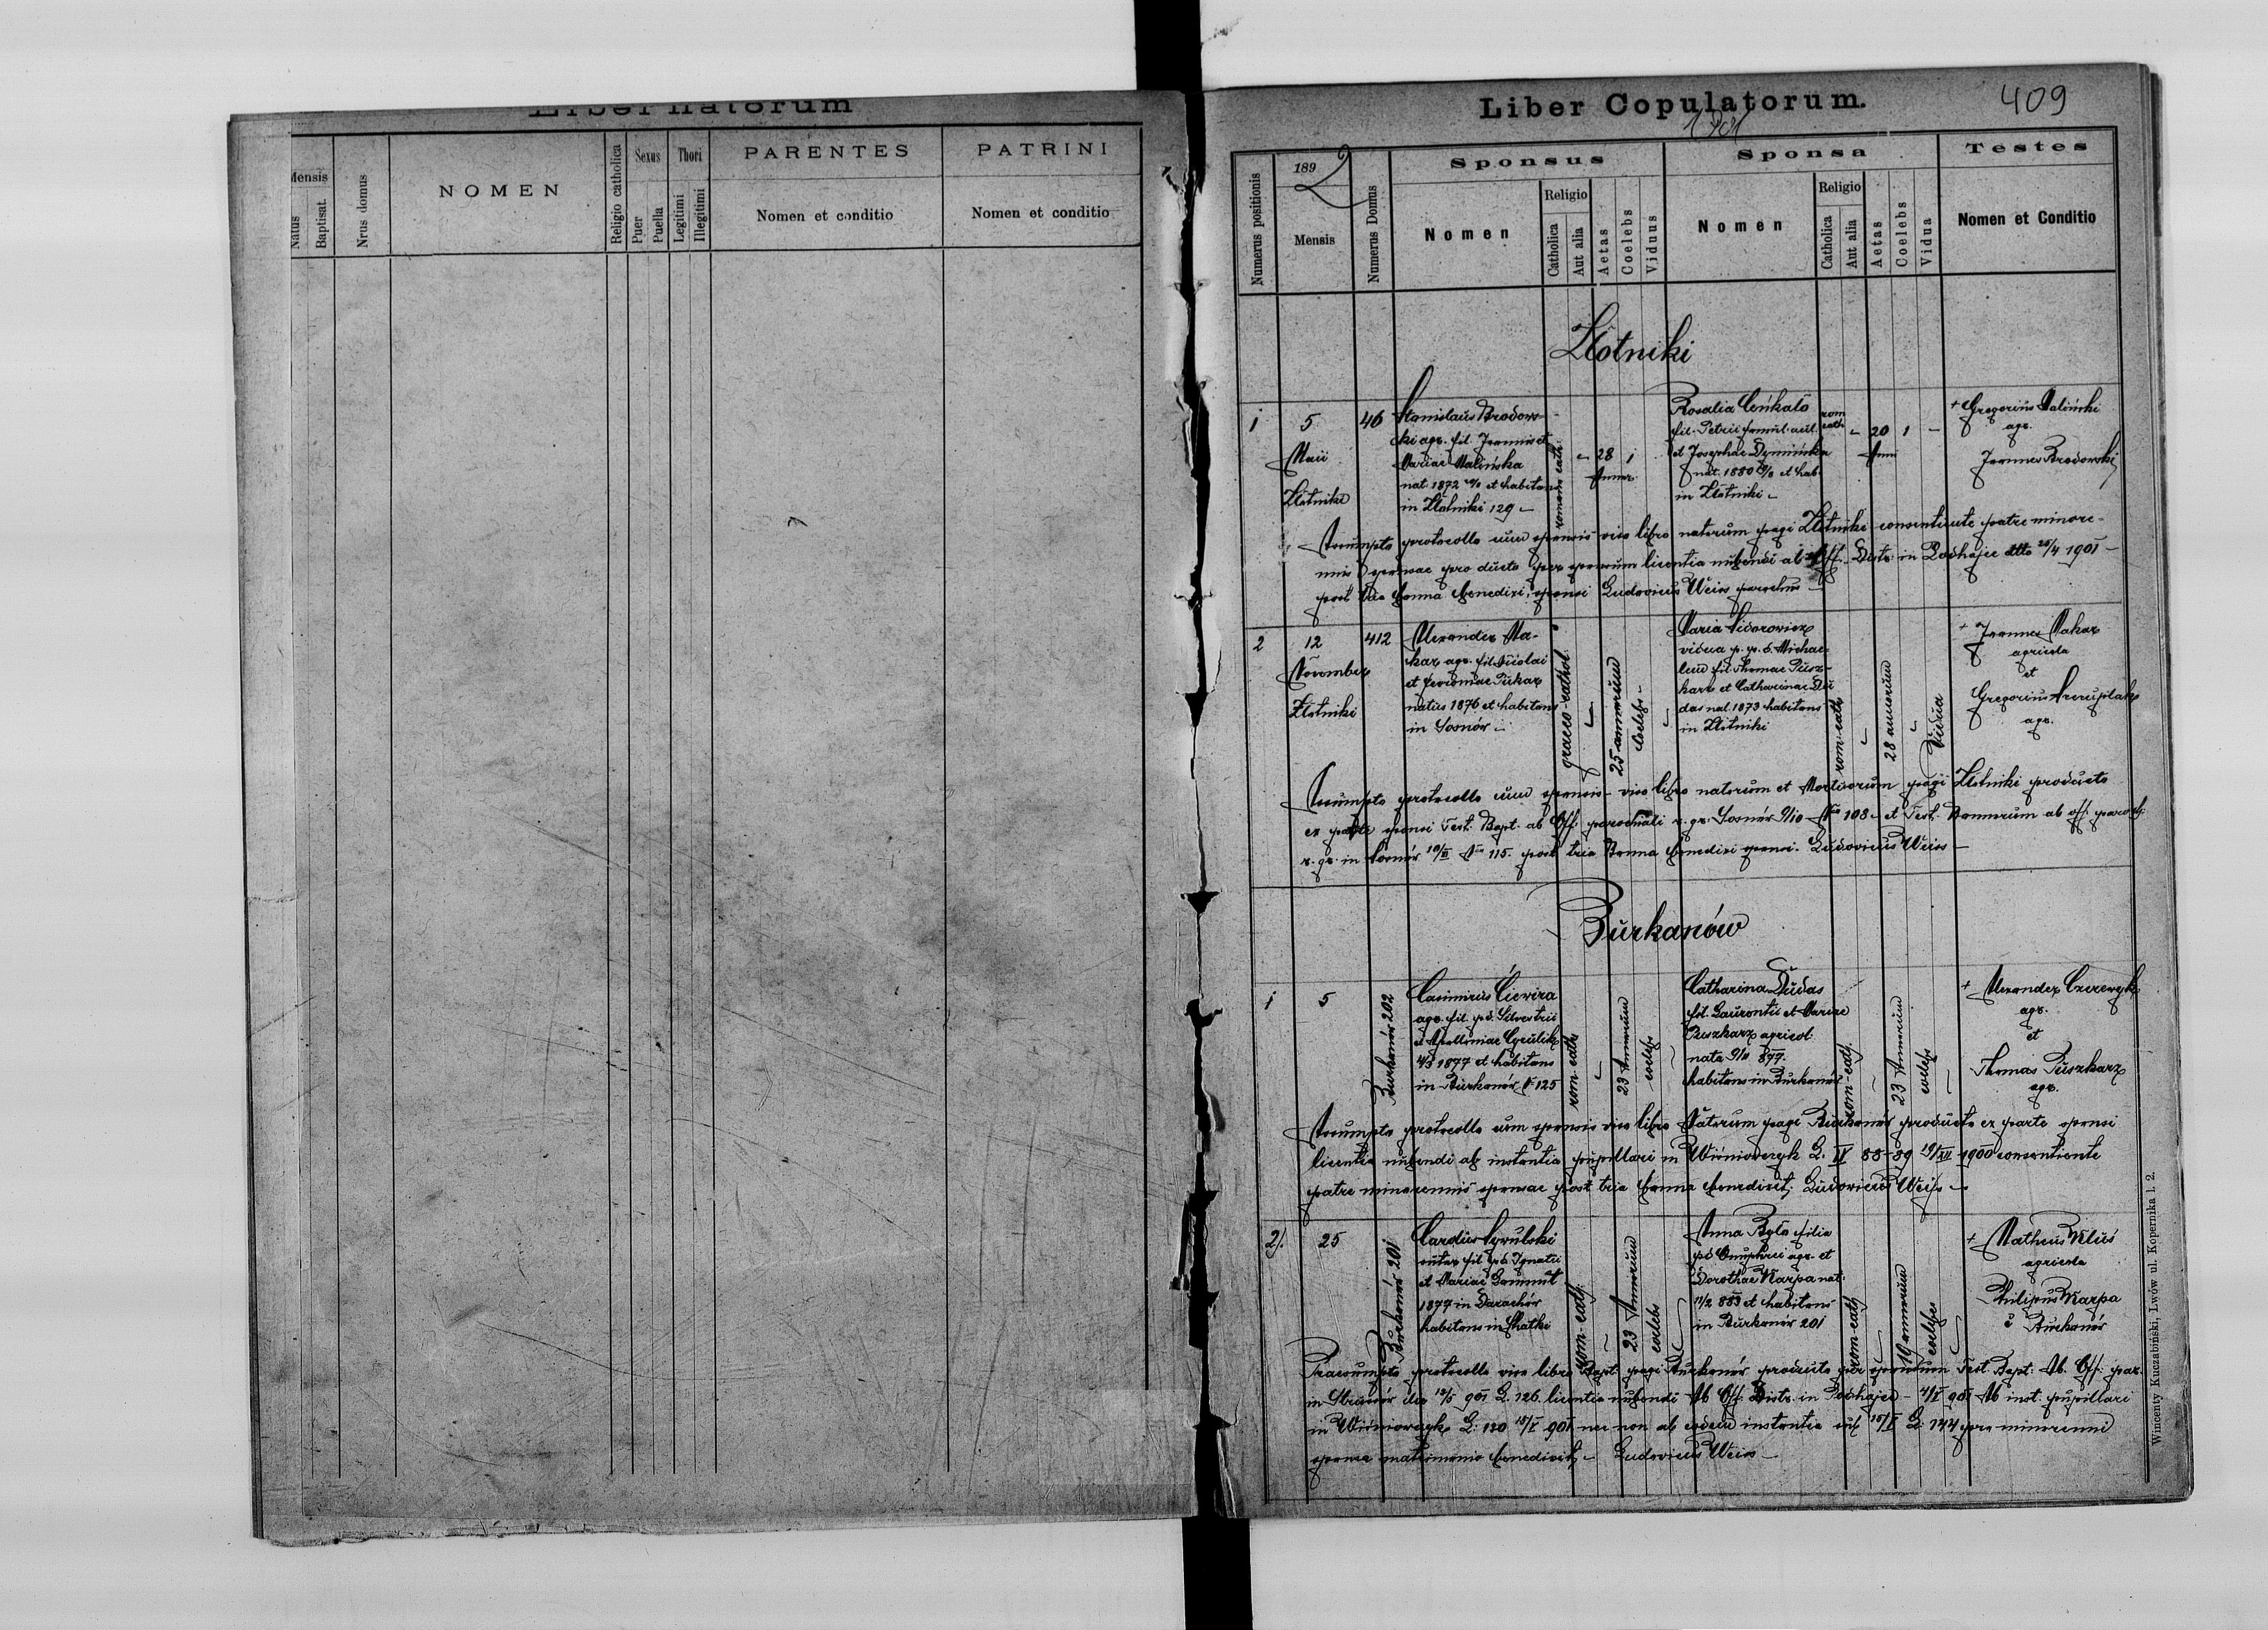 Liber natorum
Mensis
Natus
Baptisat.
Nrus domus
NOMEN
Religio catholica
Sexus
Puer
Puella
Thori
Legitimi
Illegitimi
PARENTES
Nomen et conditio
PATRINI
Nomen et conditio
409
Liber Copulatorum.
1901
Numerus positionis
189
Mensis
Numerus Domus
Sponsus
Nomen
Religio
Catholica
Aut alia
Aetas
Coelebs
Viduus
Sponsa
Nomen
Religio
Catholica
Aut alia
Aetas
Coelebs
Vidua
Testes
Nomen et Conditio
Złotniki
1
5
Maii
Złotniki
46
Stanislaus Brodow-
ski agr. fil. Joannis et
Mariae Malińska
nat. 1872 et habitans
in Złotniki 129 -
romano cath.
28
Annor.
1
Rosalia
fil. Petri famul. aul.
et Josephae Dymińska
nat. 1880 et hab.
in Złotniki -
rom
cath
20
Anno
1
+ Gregorius Maliński
agr.
Joannes Brodowski
Assumpto protocollo cum sponsis viso libro natorum pagi Złotniki consentiente patre minore-
nnis sponsae producta per sponsum licentia nubendi ab Off. Distr. in Podhajce dtto 25/4 1901 -
post tria banna benedixi sponsi Ludovicus Weiss parochus
2
12
November
Złotniki
412
Alexander Ma-
kar agr. fil. Nicolai
et Fevroniae
natus 1876 et habitans
in Sosnów -
graeco-cathol.
25 annorum
Coelebs -
Maria Sidorowicz
vidua p. p. d. Michae-
lem fil. Thomae Pusz-
karz et Catharinae Du-
das nat. 1873 habitans
in Złotniki
rom-cath
28 annorum
Vidua
+ Joannes Makar
agricola
et
Gregorius
agr.
Assumpto protocollo cum sponsis - viso libro natorum et Mortuorum pagi Złotniki producto
ex parte sponsi Test. Bapt. ab Off. parochiali r. gr. Sosnów 9/10 Nro 108 - et Test. Bannorum ab off. paroch.
r. gr. in Sosnów 10/XI Nro 115. post tria Banna benedixi sponsi. Ludovicus Weiss -
Burkanów
1
5
Burkanów 202
Casimirus Ciewira
agr. fil. p.d. Silvestrii
et Apolloniae Cyculik
4/3 1877 et habitans
in Burkanów N 125
rom-cath
23 Annorum
coelebs
Catharina Dudas
fil. Laurentii et Mariae
Puszkarz agricol.
nata 9/11 877.
habitans in Burkanów
rom-cath.
23 Annorum
coelebs
+ Alexander Czereryk
agr.
et
Thomas Puszkarz
agr.
Assumpto protocollo cum sponsis viso libro Natorum pagi Burkanów producta ex parte sponsi
licentia nubendi ab instantia pupillari in Wiśniowczyk L. IV 88-89 19/XII 1900 consentiente
patre minorennis sponsae post tria banna benedixit. Ludovicus Weiss -
2/.
25
Burkanów 201
Carolus Cyrulski
sutor fil. p.d. Ignatii
et Mariae
1877 in Darachów
habitans in Chatki
rom-cath.
23 Annorum
coelebs
Anna Było filia
p.d. Onuphrei agr. et
Dorothae Karpa nat.
11/2 883 et habitans
in Burkanów 201
rom-cath
19 annorum
coelebs
+ Matheus Kluś
agricola
Philipus Karpa
Burkanów
Praesumpto protocollo viso libro Bapt. pagi Burkanów producto per sponsum Test. Bapt. Ab. Off. par.
in Strusów dto 12/5 901 L. 126. licentia nubendi Ab Off. Distr. in Podhajce - 4/V 901 Ab inst. pupillari
in Wiśniowczyk L. 130 15/V 901 nec non ab eadem instantia sub 15/V L. 144 pro minorenni
sponsa matrimonio benedixit - Ludovicus Weiss -
Wincenty Kuczabiński, Lwów ul. Kopernika l. 2.